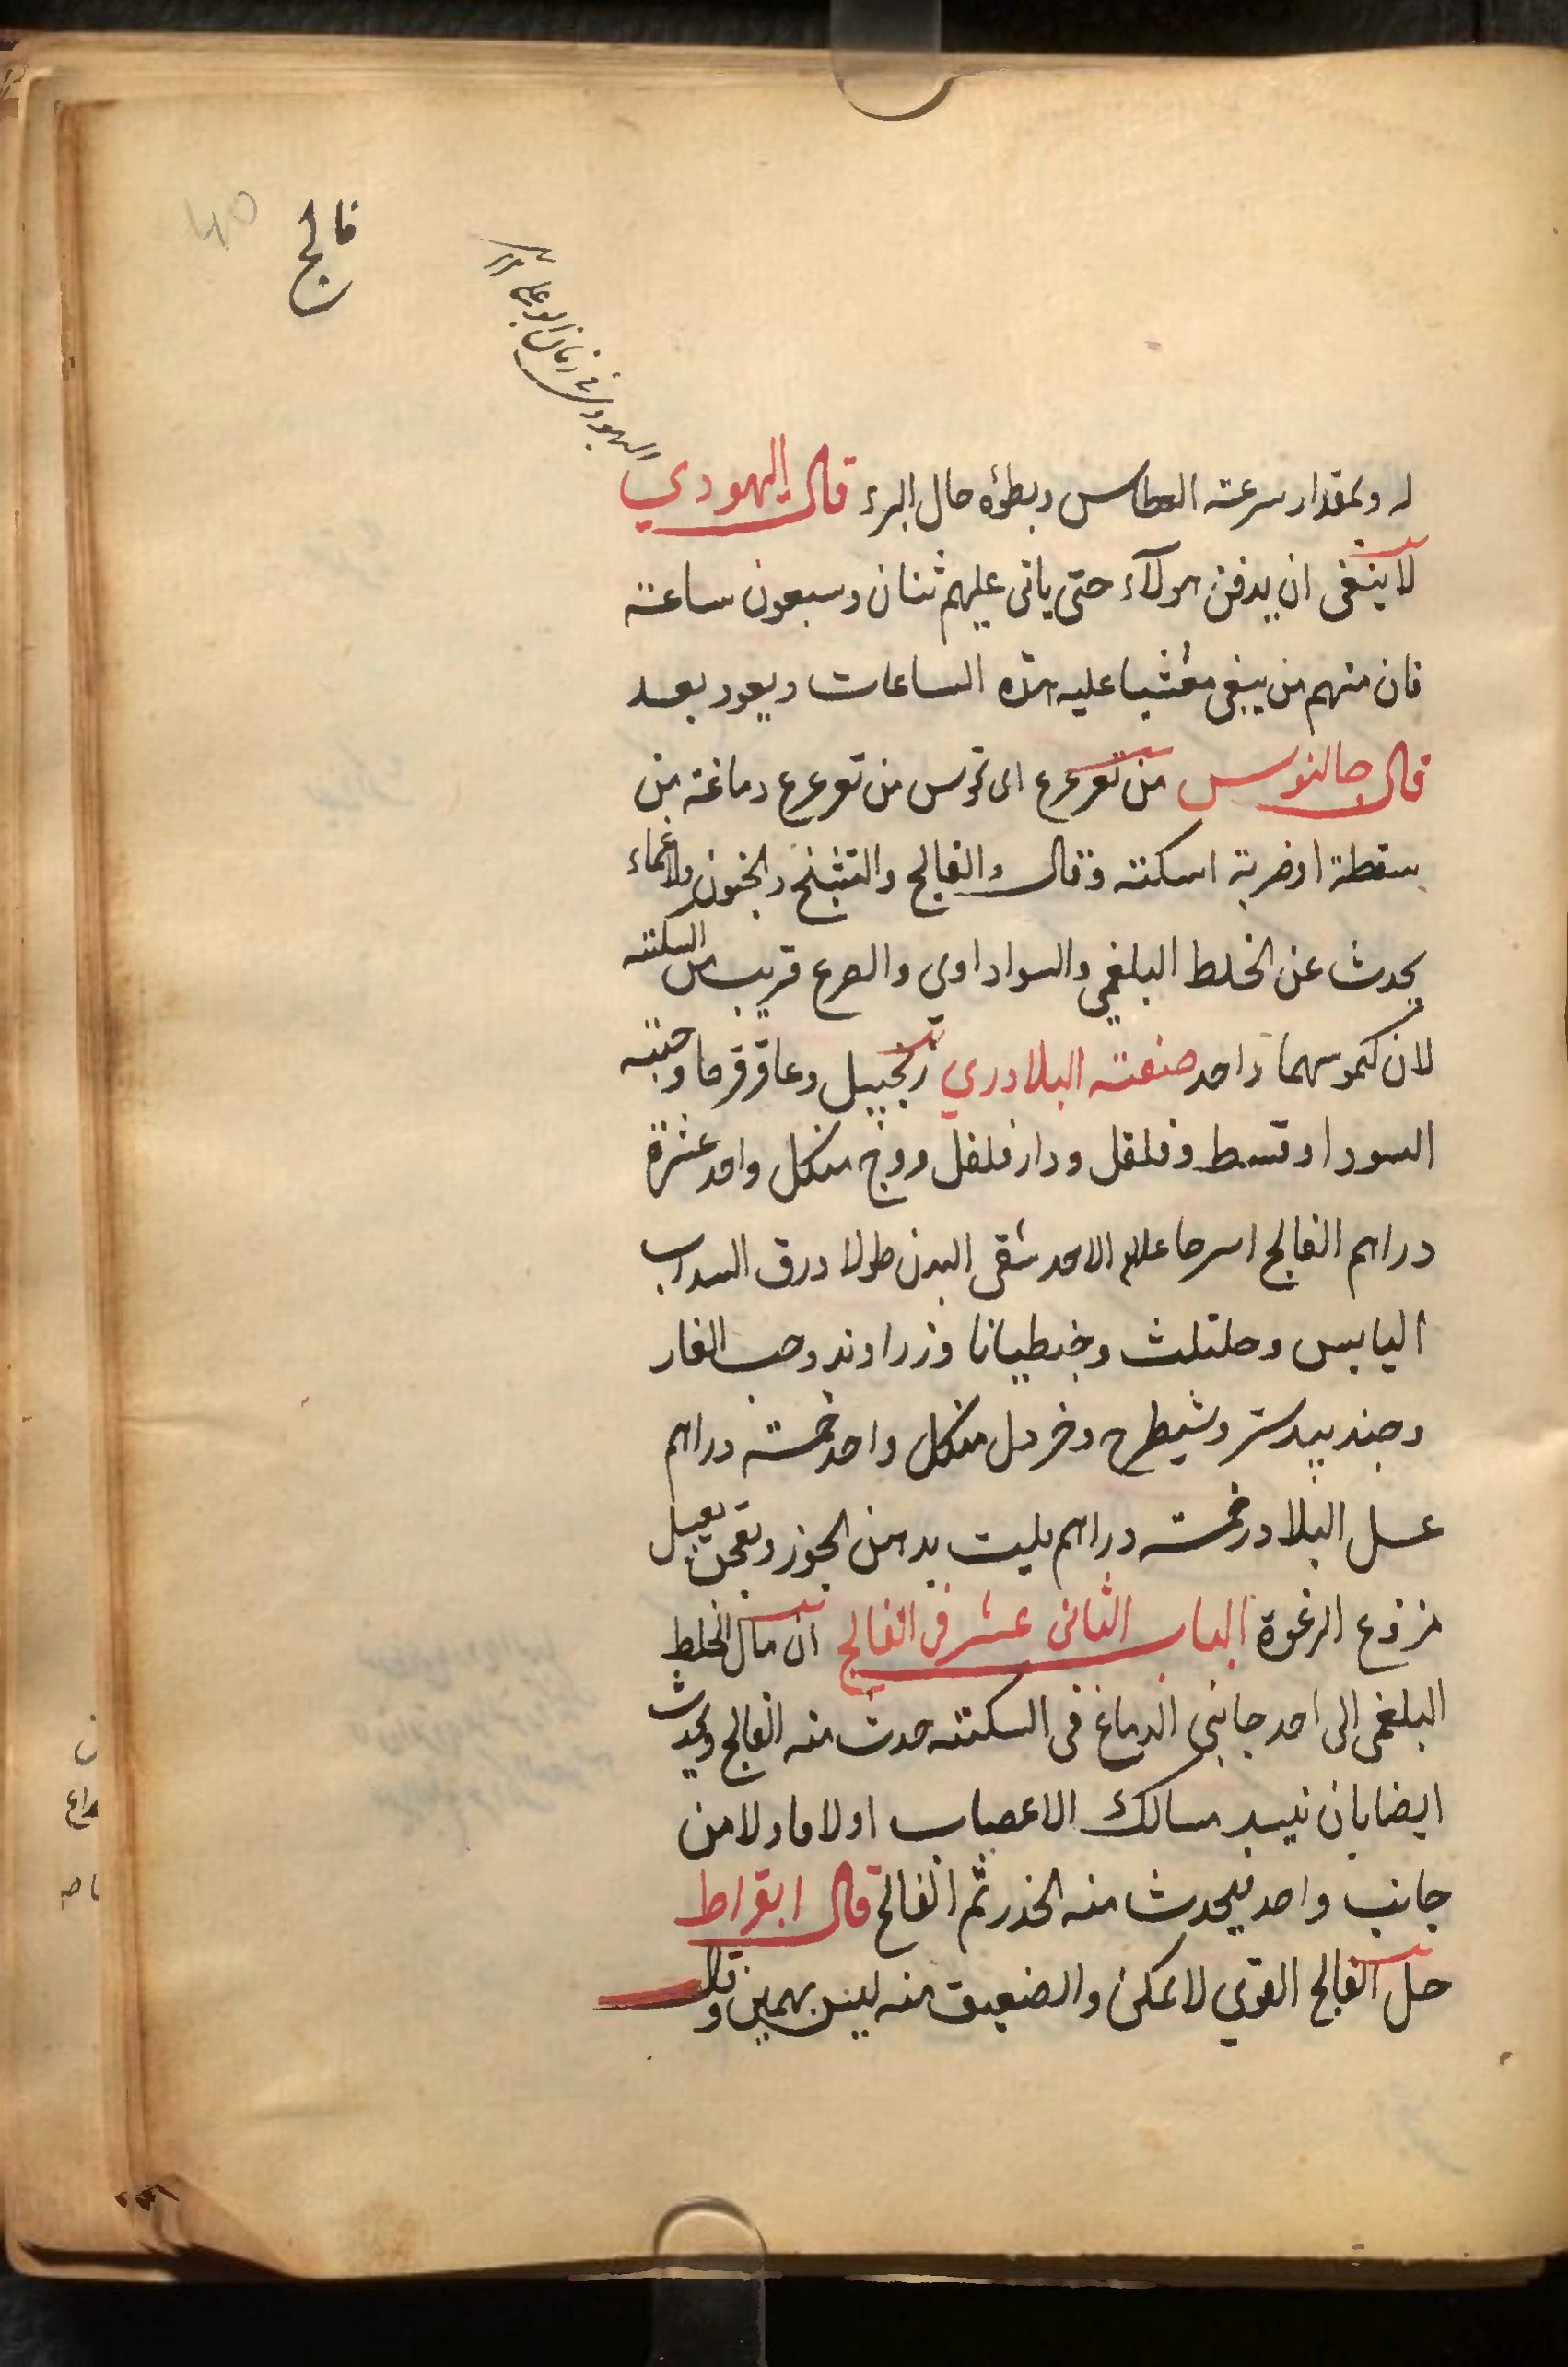 فالج
اليهودي في زمان ابو علي
له وبمقدار سرعته العطاس وبطؤه حال البرء قال اليهودي
لا ينبغي ان يدفن هولآء حتى ياتى عليهم ثنان وسبعون ساعته
فان منهم من يبقى مغشيا عليه هذه الساعات ويعود بعد
قال جالنوس من تعرعرع اى من تعرعرع دماغه من
سقطة او ضربة اسكته وقال والفالج والتشنج والجنون والاغماء
يحدث عن الخلط البلغمي والسواداوى والصرع قريب من السكته
لان كموسهما واحد صنعته البلادري زنجبيل وعاقرقرحا وحبته
السودا وقسط وفلفل ودارفلفل ووج منكل واحد عشرة
دراهم الفالج اسرحا الاحد شقى البدن طولا ورق السداب
اليابس وحلتلث وجنطيانا وزراوند وحب الغار
وجندبيدستر وشيطرح وخردل منكل واحد خمسته دراهم
عسل البلادر خمسته دراهم يليت بدهن الجوز ويعجن بعسل
منزوع الرغوة الباب الثانى عشر فى الفالج ان مال الخلط
البلغمى الى احد جانبى الدماغ فى السكتته حدث منه الفالج ويحدث
ايضا بان تنسد مسالك الاعصاب اولا فاولا من
جانب واحد فيحدث منه الخدر ثم الفالج قال ابقراط
حل الفالج القوي لا يمكن والضعيف منه ليس بهمين وقال